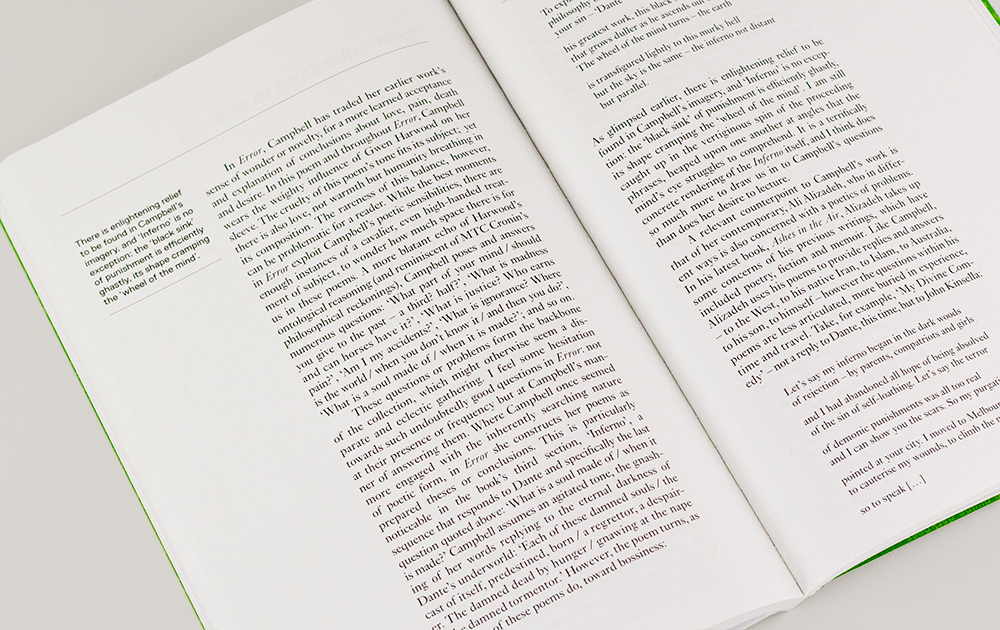 There is enlightening relief
to be found in Campbell's
imagery, and 'Inferno' is no
exception: the 'black sink'
of punishment is efficiently
ghastly, its shape cramping
the 'wheel of the mind'.
In Error, Campbell has traded her earlier work's
sense of wonder or novelty, for a more learned acceptance
and explanation of conclusions about love, pain, death
and desire. In this poem and throughout Error, Campbell
wears the weighty influence of Gwen Harwood on her
sleeve. The cruelty of this poem's tone fits its subject; yet
there is also love, not warmth but humanity breathing in
its composition. The rareness of this balance, however,
can be problematic for a reader. While the best moments
in Error exploit Campbell's poetic sensibilities, there are
enough instances of a cavalier, even high-handed treat-
ment of subject, to wonder how much space there is for
us in these poems. A more blatant echo of Harwood's
ontological reasoning (and reminiscent of MTC Cronin's
philosophical reckonings), Campbell poses and answers
numerous questions: 'What part of your mind / should
you give to the past – a third? half?', 'What is madness
and can horses have it?', 'What is justice? Who earns
pain?', 'Am I my accidents?', 'What is ignorance? Where
is the world / when you don't know it / and then you do?',
'What is a soul made of / when it is made?'; and so on.
These questions or problems form the backbone
of the collection, which might otherwise seem a dis-
parate and eclectic gathering. I feel some hesitation
towards such undoubtedly good questions in Error: not
at their presence or frequency but at Campbell's man-
ner of answering them. Where Campbell once seemed
more engaged with the inherently searching nature
of poetic form, in Error she constructs her poems as
prepared theses or conclusions. This is particularly
noticeable in the book's third section, 'Inferno', a
sequence that responds to Dante and specifically the last
question quoted above: 'What is a soul made of / when it
is made?' Campbell assumes an agitated tone, the gnash-
ing of her words replying to the eternal darkness of
Dante's underworld: 'Each of these damned souls / the
cast of itself, predestined, born / a regrettor, a despair-
er. The damned dead by hunger / gnawing at the nape
the damned tormentor.' However, the poem turns, as
of these poems do, toward bossiness:
To
philosophy
your sin – 'Dante
his greatest work, this black
that grows duller as he ascends out
The wheel of the mind turns – the earth
is transfigured lightly to this murky bell
but the sky is the same – the inferno not distant
but parallel
As glimpsed earlier, there is enlightening relief to be
found in Campbell's imagery, and 'Inferno' is no excep-
tion: the 'black sink' of punishment is efficiently ghastly,
its shape cramping the 'wheel of the mind'. I am still
caught up in the vertiginous spin of the proceeding
phrases, heaped upon one another at angles that the
mind's eye struggles to comprehend. It is a terrifically
concrete rendering of the Inferno itself, and I think does
so much more to draw us in to Campbell's questions
than does her desire to lecture.
A relevant counterpoint to Campbell's work is
that of her contemporary, Ali Alizadeh, who in differ-
ent ways is also concerned with a poetics of problems.
In his latest book, Ashes in the Air, Alizadeh takes up
some concerns of his previous writings, which have
included poetry, fiction and memoir. Like Campbell,
Alizadeh uses his poems to provide replies and answers
– to the West, to his native Iran, to Islam, to Australia,
to his son, to himself – however the questions within his
poems are less articulated, more buried in experience,
time and travel. Take, for example, 'My Divine Com-
edy' – not a reply to Dante, this time, but to John Kinsella:
Let's say my inferno began in the dark woods
of rejection – by parents, compatriots and girls
and I had abandoned all hope of being absolved
of the sin of self-loathing. Let's say the terror
of demonic punishments was all too real
and I can show you the scars. So my purgat
pointed at your city. I moved to Melbou
to cauterise my wounds, to climb the
so to speak [...]